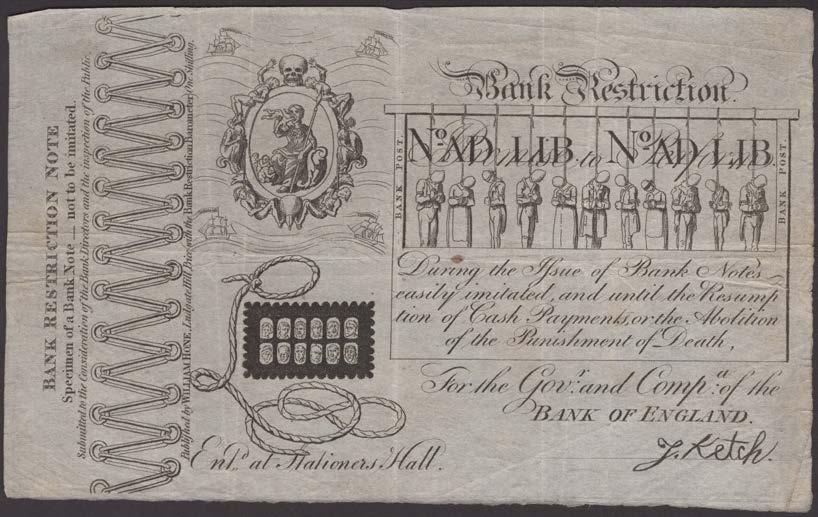 BANK RESTRICTION NOTE
Specimen of a Bank Note — not to be imitated.
Submitted to the Consideration of the Bank Directors and the inspection of the Public.
Published by WILLIAM HONE, Ludgate Hill, Price, with the Bank Restriction Barometer, One Shilling.
Bank Restriction.
BANK POST.
No. AD LIB. to No. AD LIB.
BANK POST.
During the Issue of Bank Notes
easily imitated, and until the Resump
tion of Cash Payments, or the Abolition
of the Punishment of Death,
For the Govr. and Compa. of the
BANK OF ENGLAND.
J. Ketch.
Entd. at Stationers Hall.